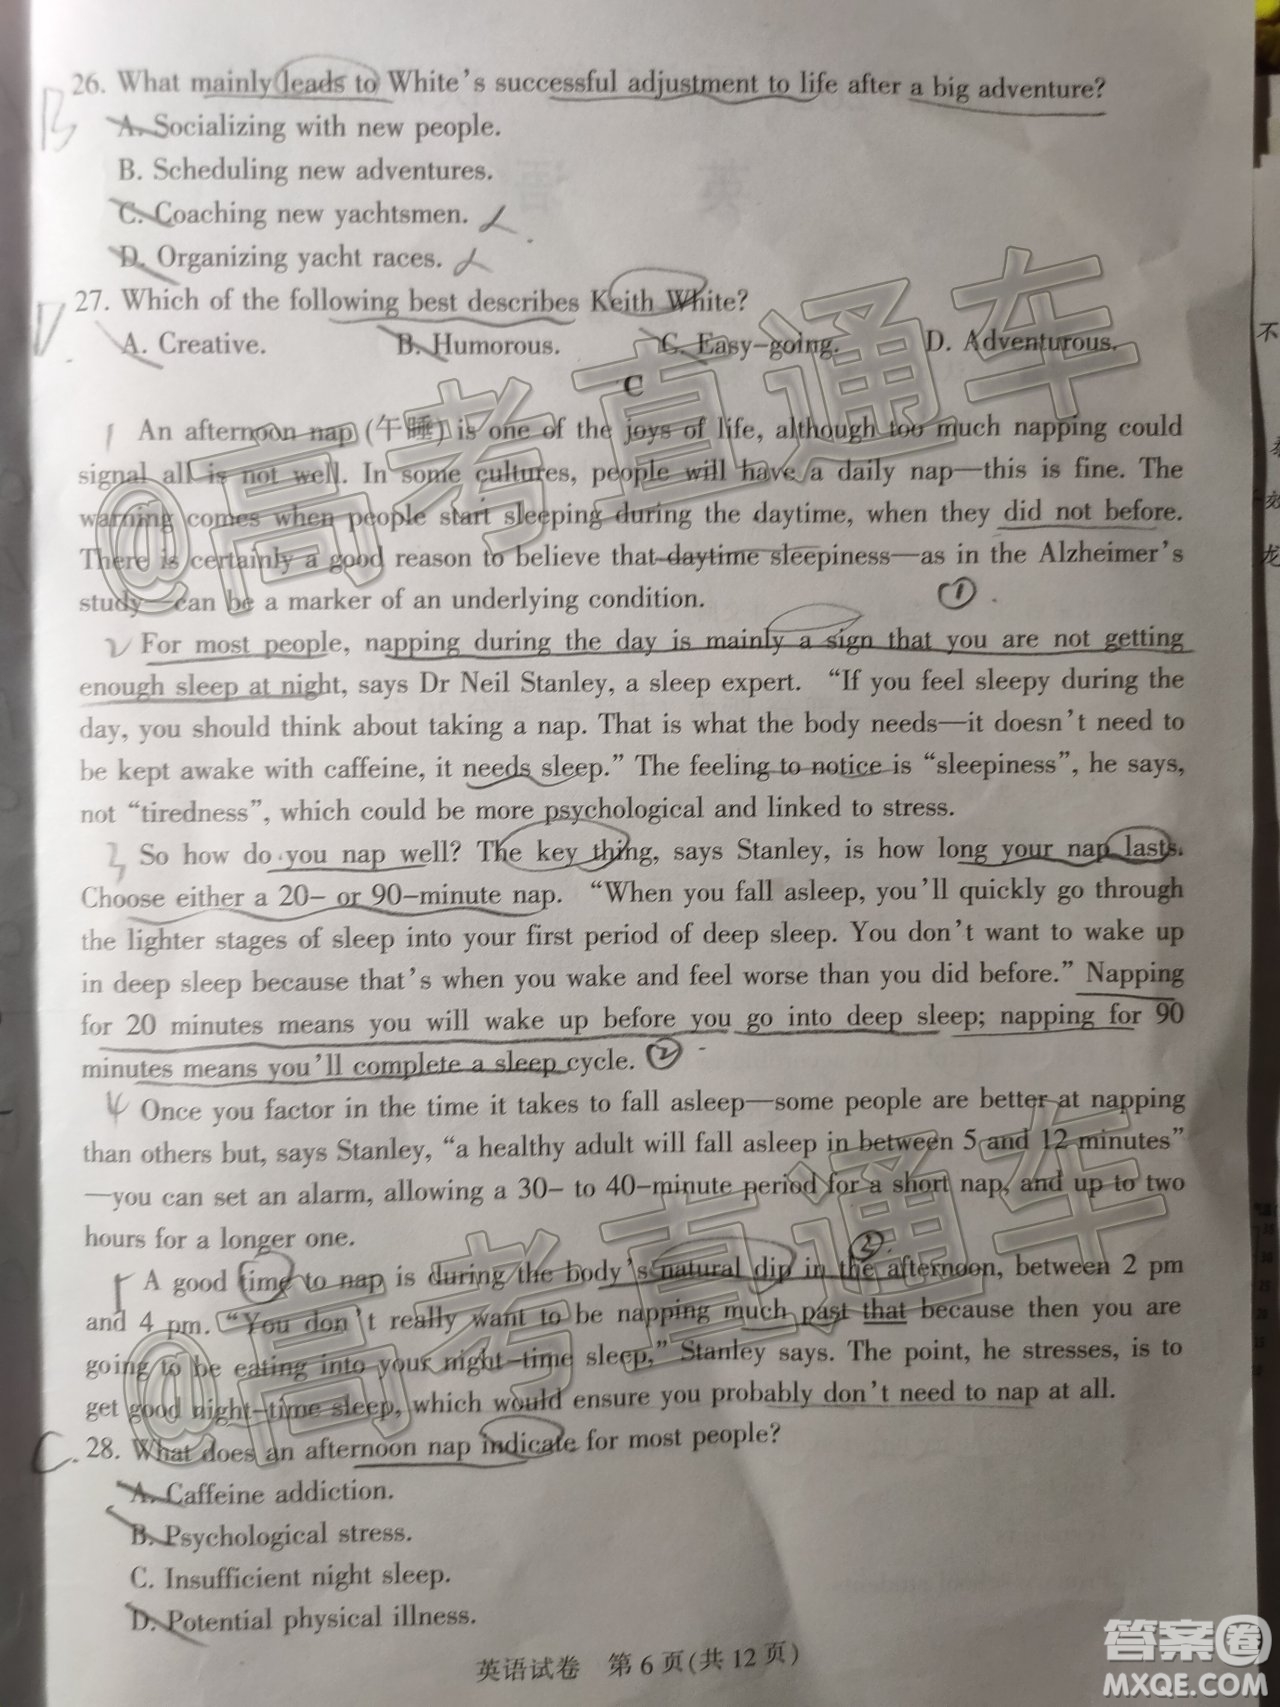 26. What mainly leads to White's successful adjustment to life after a big adventure?
B
A. Socializing with new people.
B. Scheduling new adventures.
C. Coaching new yachtsmen.
D. Organizing yacht races.
27. Which of the following best describes Keith White?
D
A. Creative. B. Humorous. C. Easy-going. D. Adventurous.
C
1 An afternoon nap (午睡) is one of the joys of life, although too much napping could
signal all is not well. In some cultures, people will have a daily nap—this is fine. The
warning comes when people start sleeping during the daytime, when they did not before.
There is certainly a good reason to believe that daytime sleepiness—as in the Alzheimer's
study—can be a marker of an underlying condition. ①
2 For most people, napping during the day is mainly a sign that you are not getting
enough sleep at night, says Dr Neil Stanley, a sleep expert. “If you feel sleepy during the
day, you should think about taking a nap. That is what the body needs—it doesn't need to
be kept awake with caffeine, it needs sleep.” The feeling to notice is “sleepiness”, he says,
not “tiredness”, which could be more psychological and linked to stress.
3 So how do you nap well? The key thing, says Stanley, is how long your nap lasts.
Choose either a 20- or 90-minute nap. “When you fall asleep, you'll quickly go through
the lighter stages of sleep into your first period of deep sleep. You don't want to wake up
in deep sleep because that's when you wake and feel worse than you did before.” Napping
for 20 minutes means you will wake up before you go into deep sleep; napping for 90
minutes means you'll complete a sleep cycle. ②
4 Once you factor in the time it takes to fall asleep—some people are better at napping
than others but, says Stanley, “a healthy adult will fall asleep in between 5 and 12 minutes”
—you can set an alarm, allowing a 30- to 40-minute period for a short nap, and up to two
hours for a longer one.
A good time to nap is during the body's natural dip in the afternoon, between 2 pm
and 4 pm. “You don't really want to be napping much past that because then you are
going to be eating into your night-time sleep,” Stanley says. The point, he stresses, is to
get good night-time sleep, which would ensure you probably don't need to nap at all.
C. 28. What does an afternoon nap indicate for most people?
A. Caffeine addiction.
B. Psychological stress.
C. Insufficient night sleep.
D. Potential physical illness.
英语试卷 第6页(共12页)
@高考直通车
@高考直通车
答案圈
MXQE.COM
不
龙